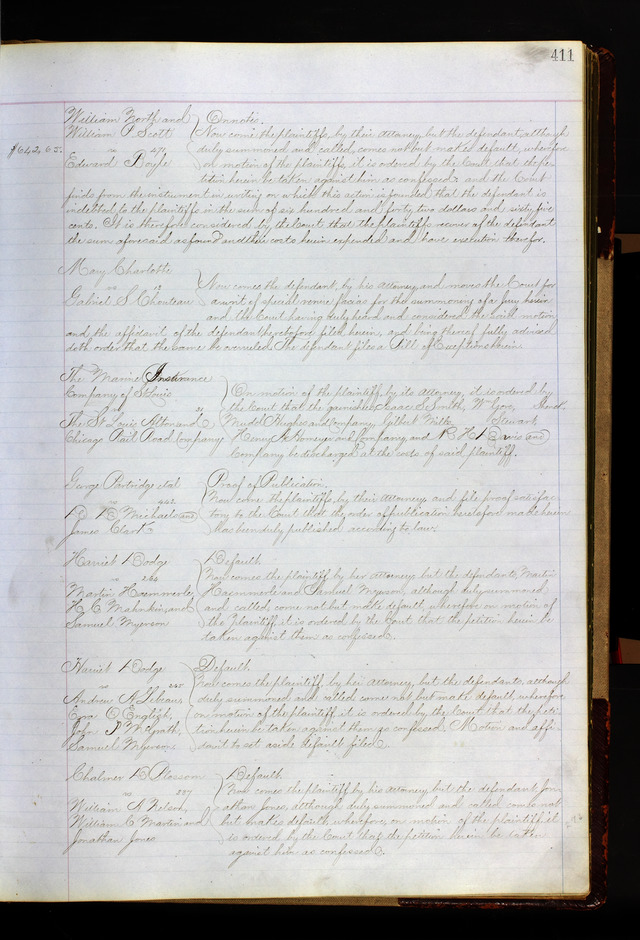 411
William North and } On notes.
William P Scott } Now come the plaintiffs, by their Attorney, but the defendant, although
$642.65. vs 271 duly summoned and called, comes not but makes default, wherefore
Edward Boyle on motion of the plaintiffs, it is ordered by the Court that the pe-
tition herein be taken against him as confessed; and the Court
finds from the instrument in writing on which this action is founded that the defendant is
indebted to the plaintiffs in the sum of six hundred and forty two dollars and sixty five
cents. It is therefore considered by the Court that the plaintiffs recover of the defendant
the sum aforesaid as found and their costs herein expended and have execution therefor.
Mary Charlotte
vs } Now comes the defendant, by his Attorney, and moves the Court for
Gabriel S Chouteau a writ of special venire facias for the summoning of a jury herein
and the Court having duly heard and considered the said motion
and the affidavit of the defendant heretofore filed herein, and being thereof fully advised
doth order that the same be overruled. The defendant files a Bill of Exceptions herein.
The Marine Insurance
Company of St Louis } On motion of the plaintiff, by its Attorney, it is ordered by
vs 31 the Court that the garnishees, Isaac S. Smith, Wm
The St Louis Alton and Hughes and Company, Gilbert Stewart,
Chicago Rail Road Company Henry and Company, and Davis and
Company be discharged at the costs of said plaintiff.
George Partridge et al } Proof of Publication.
vs 442 Now come the plaintiffs, by their Attorney, and file proof satisfac-
Michaels and tory to the Court that the order of publication heretofore made herein
James Clark has been duly published according to law.
Harriet Dodge } Default.
vs 244 Now comes the plaintiff, by her Attorney, but the defendants, Martin
Martin Haemmerle, Haemmerle and Samuel Myerson, although duly summoned
H. C. Mahnken, and and called, come not but make default, wherefore on motion of
Samuel Myerson the Plaintiff, it is ordered by the Court that the petition herein be
taken against them as confessed.
Harriet Dodge } Default.
vs 245 Now comes the plaintiff, by her Attorney, but the defendants, although
Andrew duly summoned and called, come not but make default, wherefore
Ezra O English, on motion of the plaintiff, it is ordered by the Court that the peti-
John tion herein be taken against them as confessed. Motion and affi-
Samuel Myerson davit to set aside default filed.
Chalmer D Blossom } Default.
vs 287 Now comes the plaintiff by his Attorney, but the defendant Jon-
William N Nelson, athan Jones, although duly summoned and called comes not
William C Martin and but makes default, wherefore, on motion of the plaintiff it
Jonathan Jones is ordered by the Court that the petition herein be taken
against him as confessed.